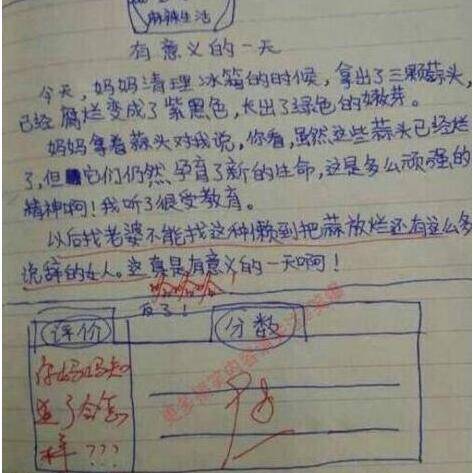 麻辣生活
有意义的一天
今天,妈妈清理冰箱的时候,拿出了三颗蒜头,
已经腐烂变成了紫黑色,长出了绿色的嫩芽。
妈妈拿着蒜头对我说,你看,虽然这些蒜头已经烂
了,但它们仍然孕育了新的生命,这是多么顽强的
精神啊!我听了很受教育。
以后找老婆不能找这种懒到把蒜放烂还有这么多
说辞的女人。这真是有意义的一天啊!
哈哈哈
反了!
评价
分数
你妈妈知
道了会怎
样???
98